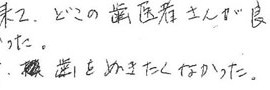 来て、どこの歯医者さんが良
った。
歯をぬきたくなかった。